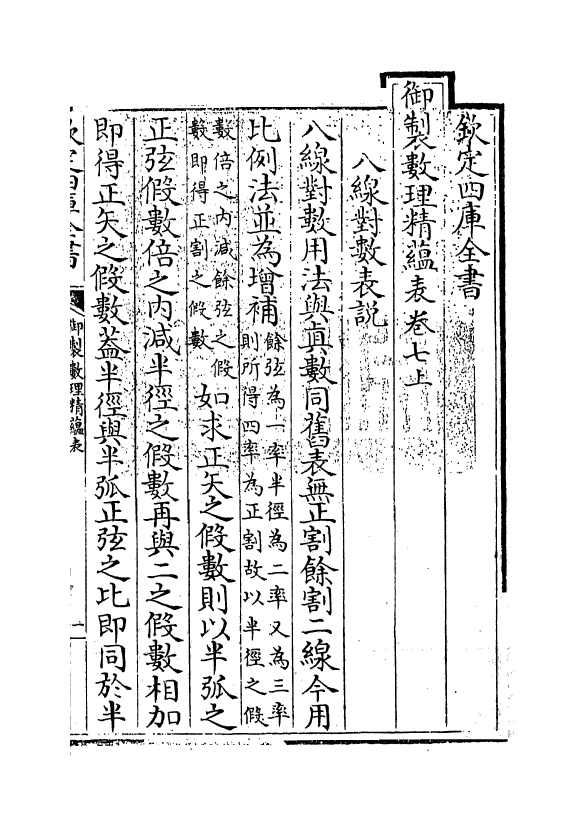 欽定四庫全書
御製數理精蘊表卷七上
八線對數表説
八線對數用法與真數同舊表無正割餘割二線今用
比例法並為增補餘弦為一率半徑為二率又為三率則所得四率為正割故以半徑之假
數倍之内減餘弦之假數即得正割之假數如求正矢之假數則以半弧之
正弦假數倍之内減半徑之假數再與二之假數相加
即得正矢之假數葢半徑與半弧正弦之比即同於半
欽定四庫全書
御製數理精蘊表
一